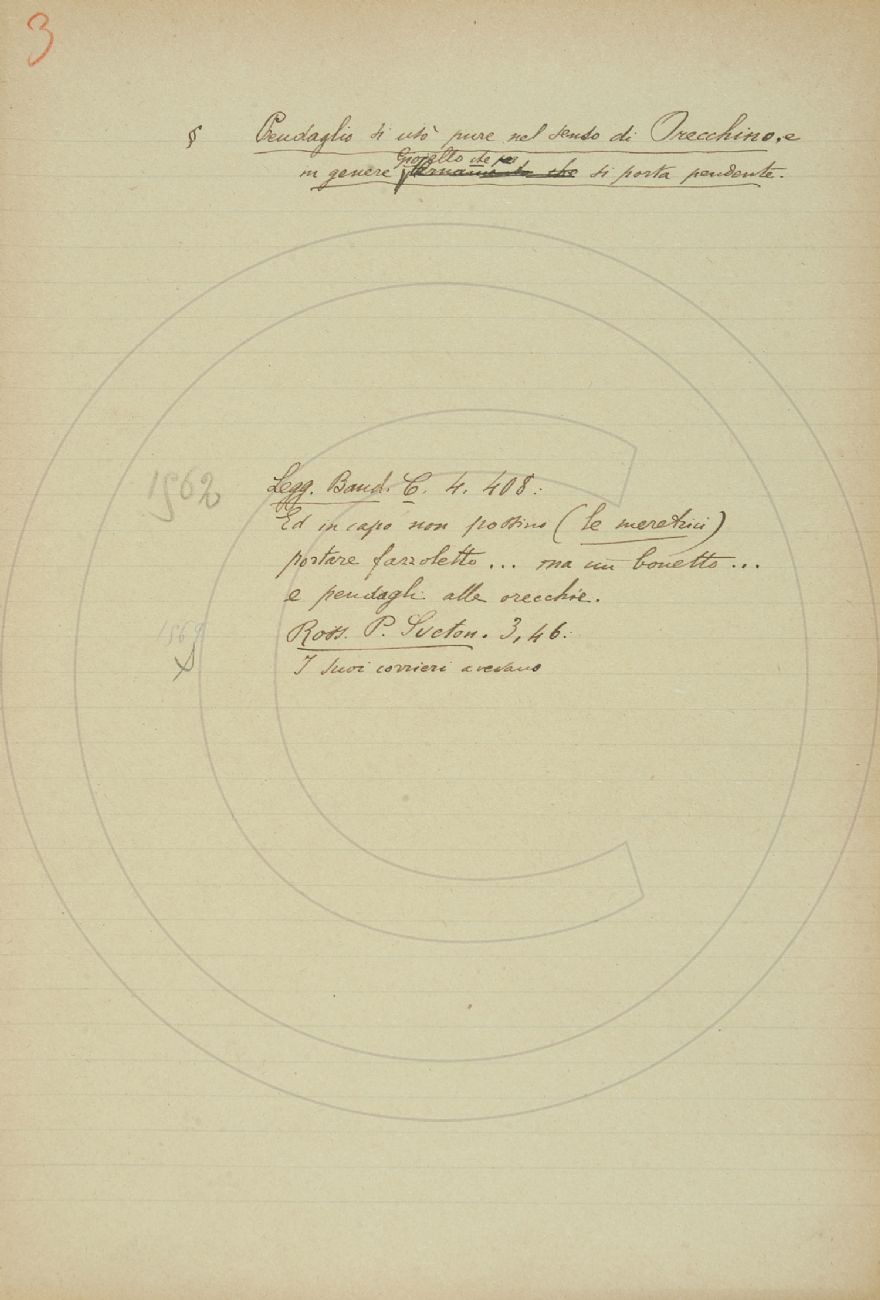 3
§ Pendaglio si usò pure nel senso di Orecchino, e
Gioiello che
in genere si porta pendente.
1562
Legg. Band. C. 4. 408:
Ed in capo non possino (le meretrici)
portare fazzoletto ... ma un bonetto ...
e pendagli alle orecchie.
Ross. P. Sveton. 3, 46:
I suoi corrieri avevano